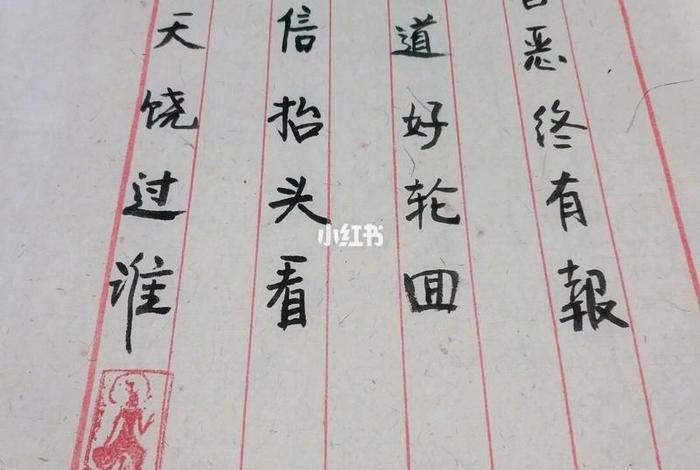 恶终有報
道好轮回
信抬头看
天饶过谁
小红书